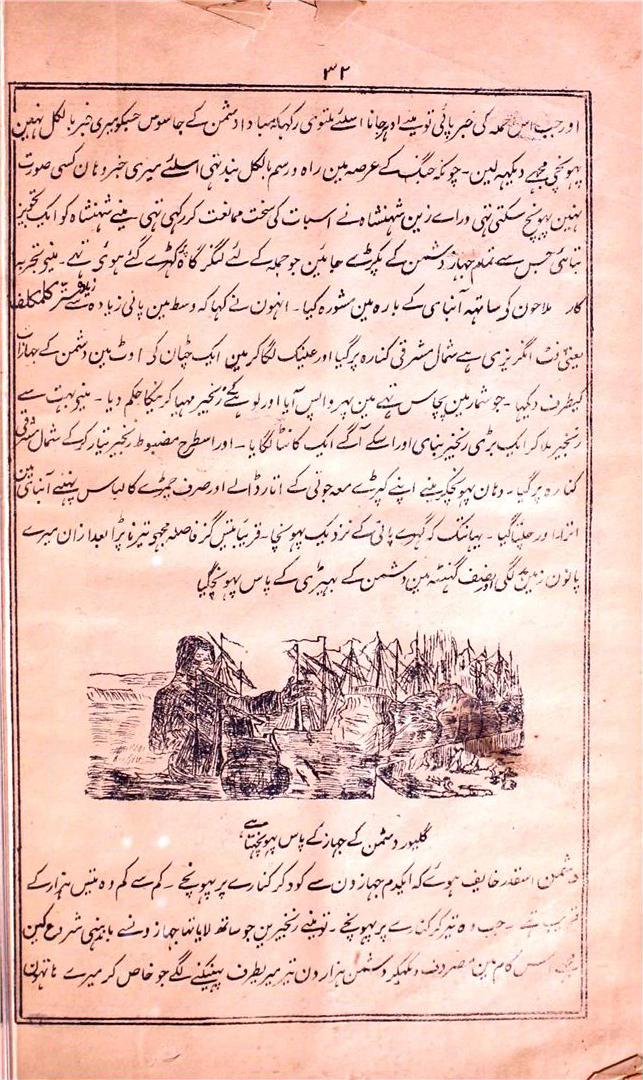 ۳۲
اور جب اس حملہ کی خبر پائی تو مینے ادہر جانا اسلئے ملتوی رکہا کہ مبادا دشمن کے جاسوس جنکو میری خبر بالکل نہین
پہونچی مجہے دیکہہ لین۔ چونکہ جنگ کے عرصہ مین راہ و رسم بالکل بند تہی اسلئے میری خبر وہان کسی صورت
نہین پہونچ سکتی تہی ورائے زین شہنشاہ نے اسبات کی سخت ممانعت کر رکہی تہی مینے شہنشاہ کو ایک تجویز
بتائی جس سے تمام جہاز دشمن کے پکڑے جائین جو حملہ کے لئے لنگر گاہ کہڑے گئے ہوئی تہے۔ مینے تجربہ
کار ملاحون کی ساتہہ آبنای کے بارہ مین مشورہ کیا۔ انہون نے کہا کہ وسط مین پانی زیادہ سے
یعنی فٹ انگریزی ہے شمال مشرقی کنارہ پر گیا اور عینک لگا کر مین ایک چٹان کی اوٹ مین دشمن کے جہازات
کیطرف دیکہا۔ جو شمار مین پچاس تہے مین پہر واپس آیا اور لوہیکے زنجیر مہیا کر نیکا حکم دیا۔ مینے بہت سے
زنجیر ملا کر ایک بڑی زنجیر بنای اور اسکے آگے ایک کانٹا لگایا۔ اور اسطرح مضبوط زنجیر تیار کر کے شمال مشرقی
کنارہ پر گیا۔ وہان پہونچکر مینے اپنے کپڑے معہ جوتی کے اتار ڈالے اور صرف چمڑے کا لباس پہنے آبنای مین
اترا اور چلتا گیا۔ یہانتک کہ گہرے پانی کے نزدیک پہونچا۔ قریباً تیس گز فاصلہ مجہی تیرنا پڑا بعد ازان میرے
پانون زمین پر لگی اور نصف گہنٹہ مین دشمن کے بہیڑی کے پاس پہونچ گیا
گلیور دشمن کے جہاز کے پاس پہونچتا ہے
دشمن اسقدر خایف ہوئے کہ ایکدم جہازون سے کود کر کنارے پر پہونچے۔ کم سے کم وہ تیس ہزار کے
قریب تہے۔ جب وہ تیر کر کنارے پر پہونچے۔ تو مینے زنجیرین جو ساتھ لایا تہا جہازونسے باندہنی شروع کین
مجہے اس کام مین مصروف دیکہکر دشمن ہزارون تیر میریطرف پہینکنے لگے جو خاص کر میرے ہاتہون